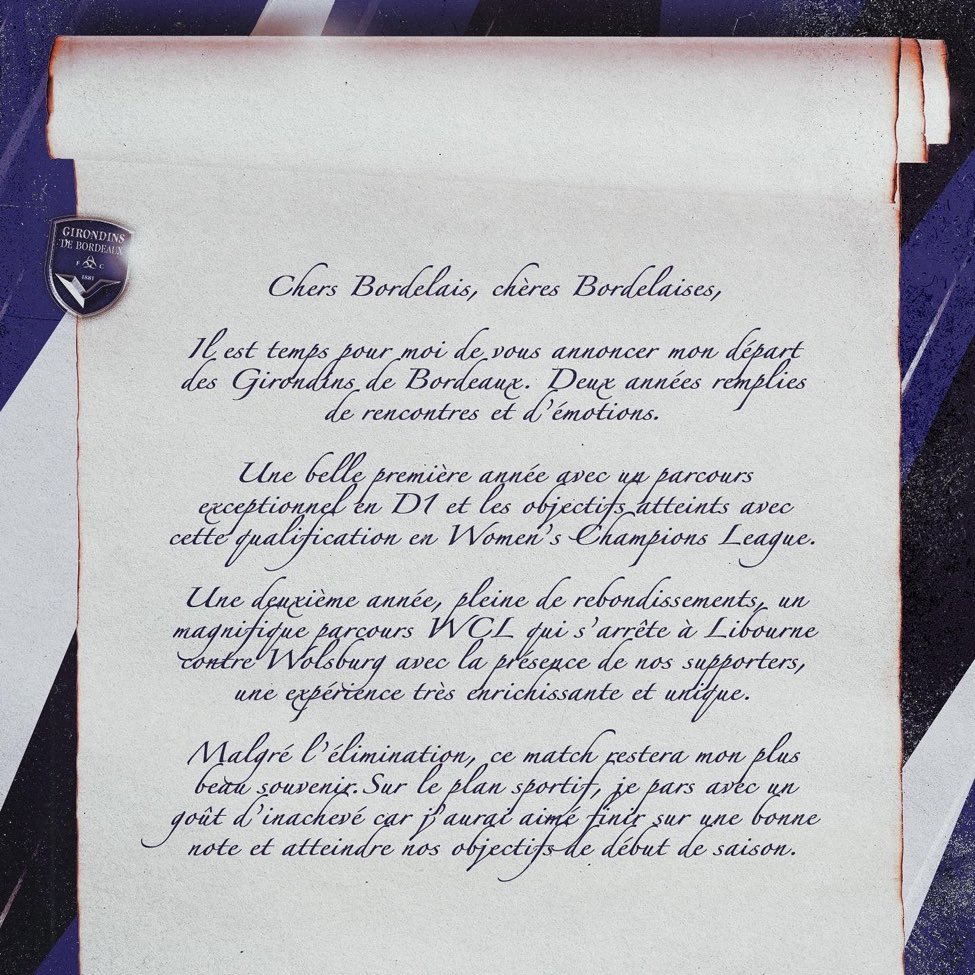 GIRONDINS
DE BORDEAUX
F C
1881
Chers Bordelais, chères Bordelaises,
Il est temps pour moi de vous annoncer mon départ
des Girondins de Bordeaux. Deux années remplies
de rencontres et d'émotions.
Une belle première année avec un parcours
exceptionnel en D1 et les objectifs atteints avec
cette qualification en Women's Champions League.
Une deuxième année, pleine de rebondissements, un
magnifique parcours WCL qui s'arrête à Libourne
contre Wolsburg avec la présence de nos supporters,
une expérience très enrichissante et unique.
Malgré l'élimination, ce match restera mon plus
beau souvenir.Sur le plan sportif, je pars avec un
goût d'inachevé car j'aurai aimé finir sur une bonne
note et atteindre nos objectifs de début de saison.